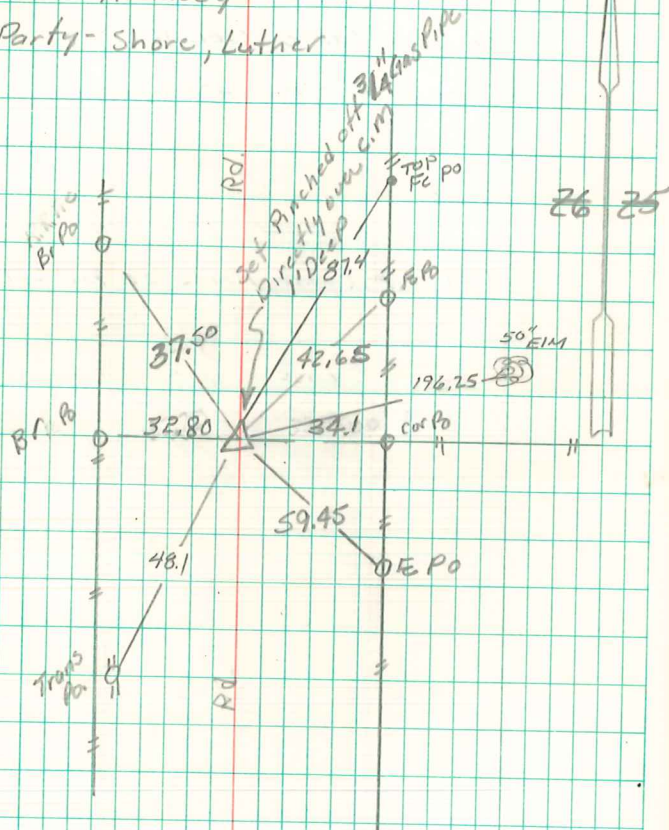 Party - Shore, Luther
Rd.
Set Pinched off 3/4" Gas Pipe
Directly over C.M
1' Deep
TOP
FC PO
26 25
Br Po
87.4
E Po
37.50
42.65
50" Elm
196.25
Br. Po
32.80
34.1
cor Po
59.45
48.1
E Po
Trans
Po.
Rd